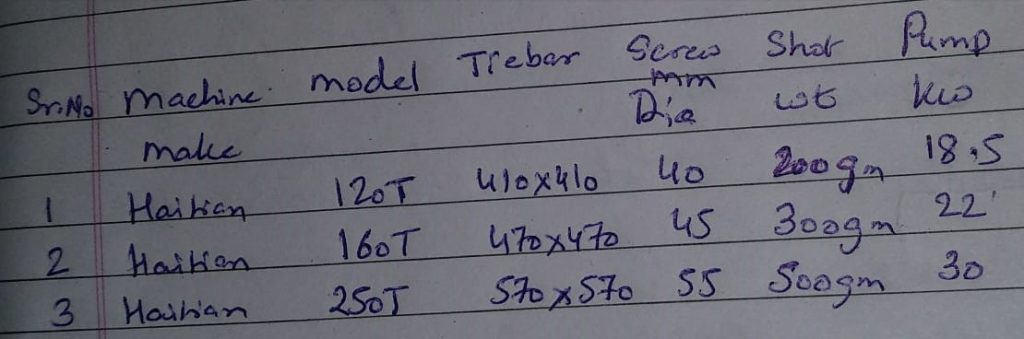 Sr.No Machine model Trebar Screw Shot Pump
make mm wt kw
Dia
1 Haitian 120T 410x410 40 200gm 18.5
2 Haitian 160T 470x470 45 300gm 22
3 Haitian 250T 570x570 55 500gm 30